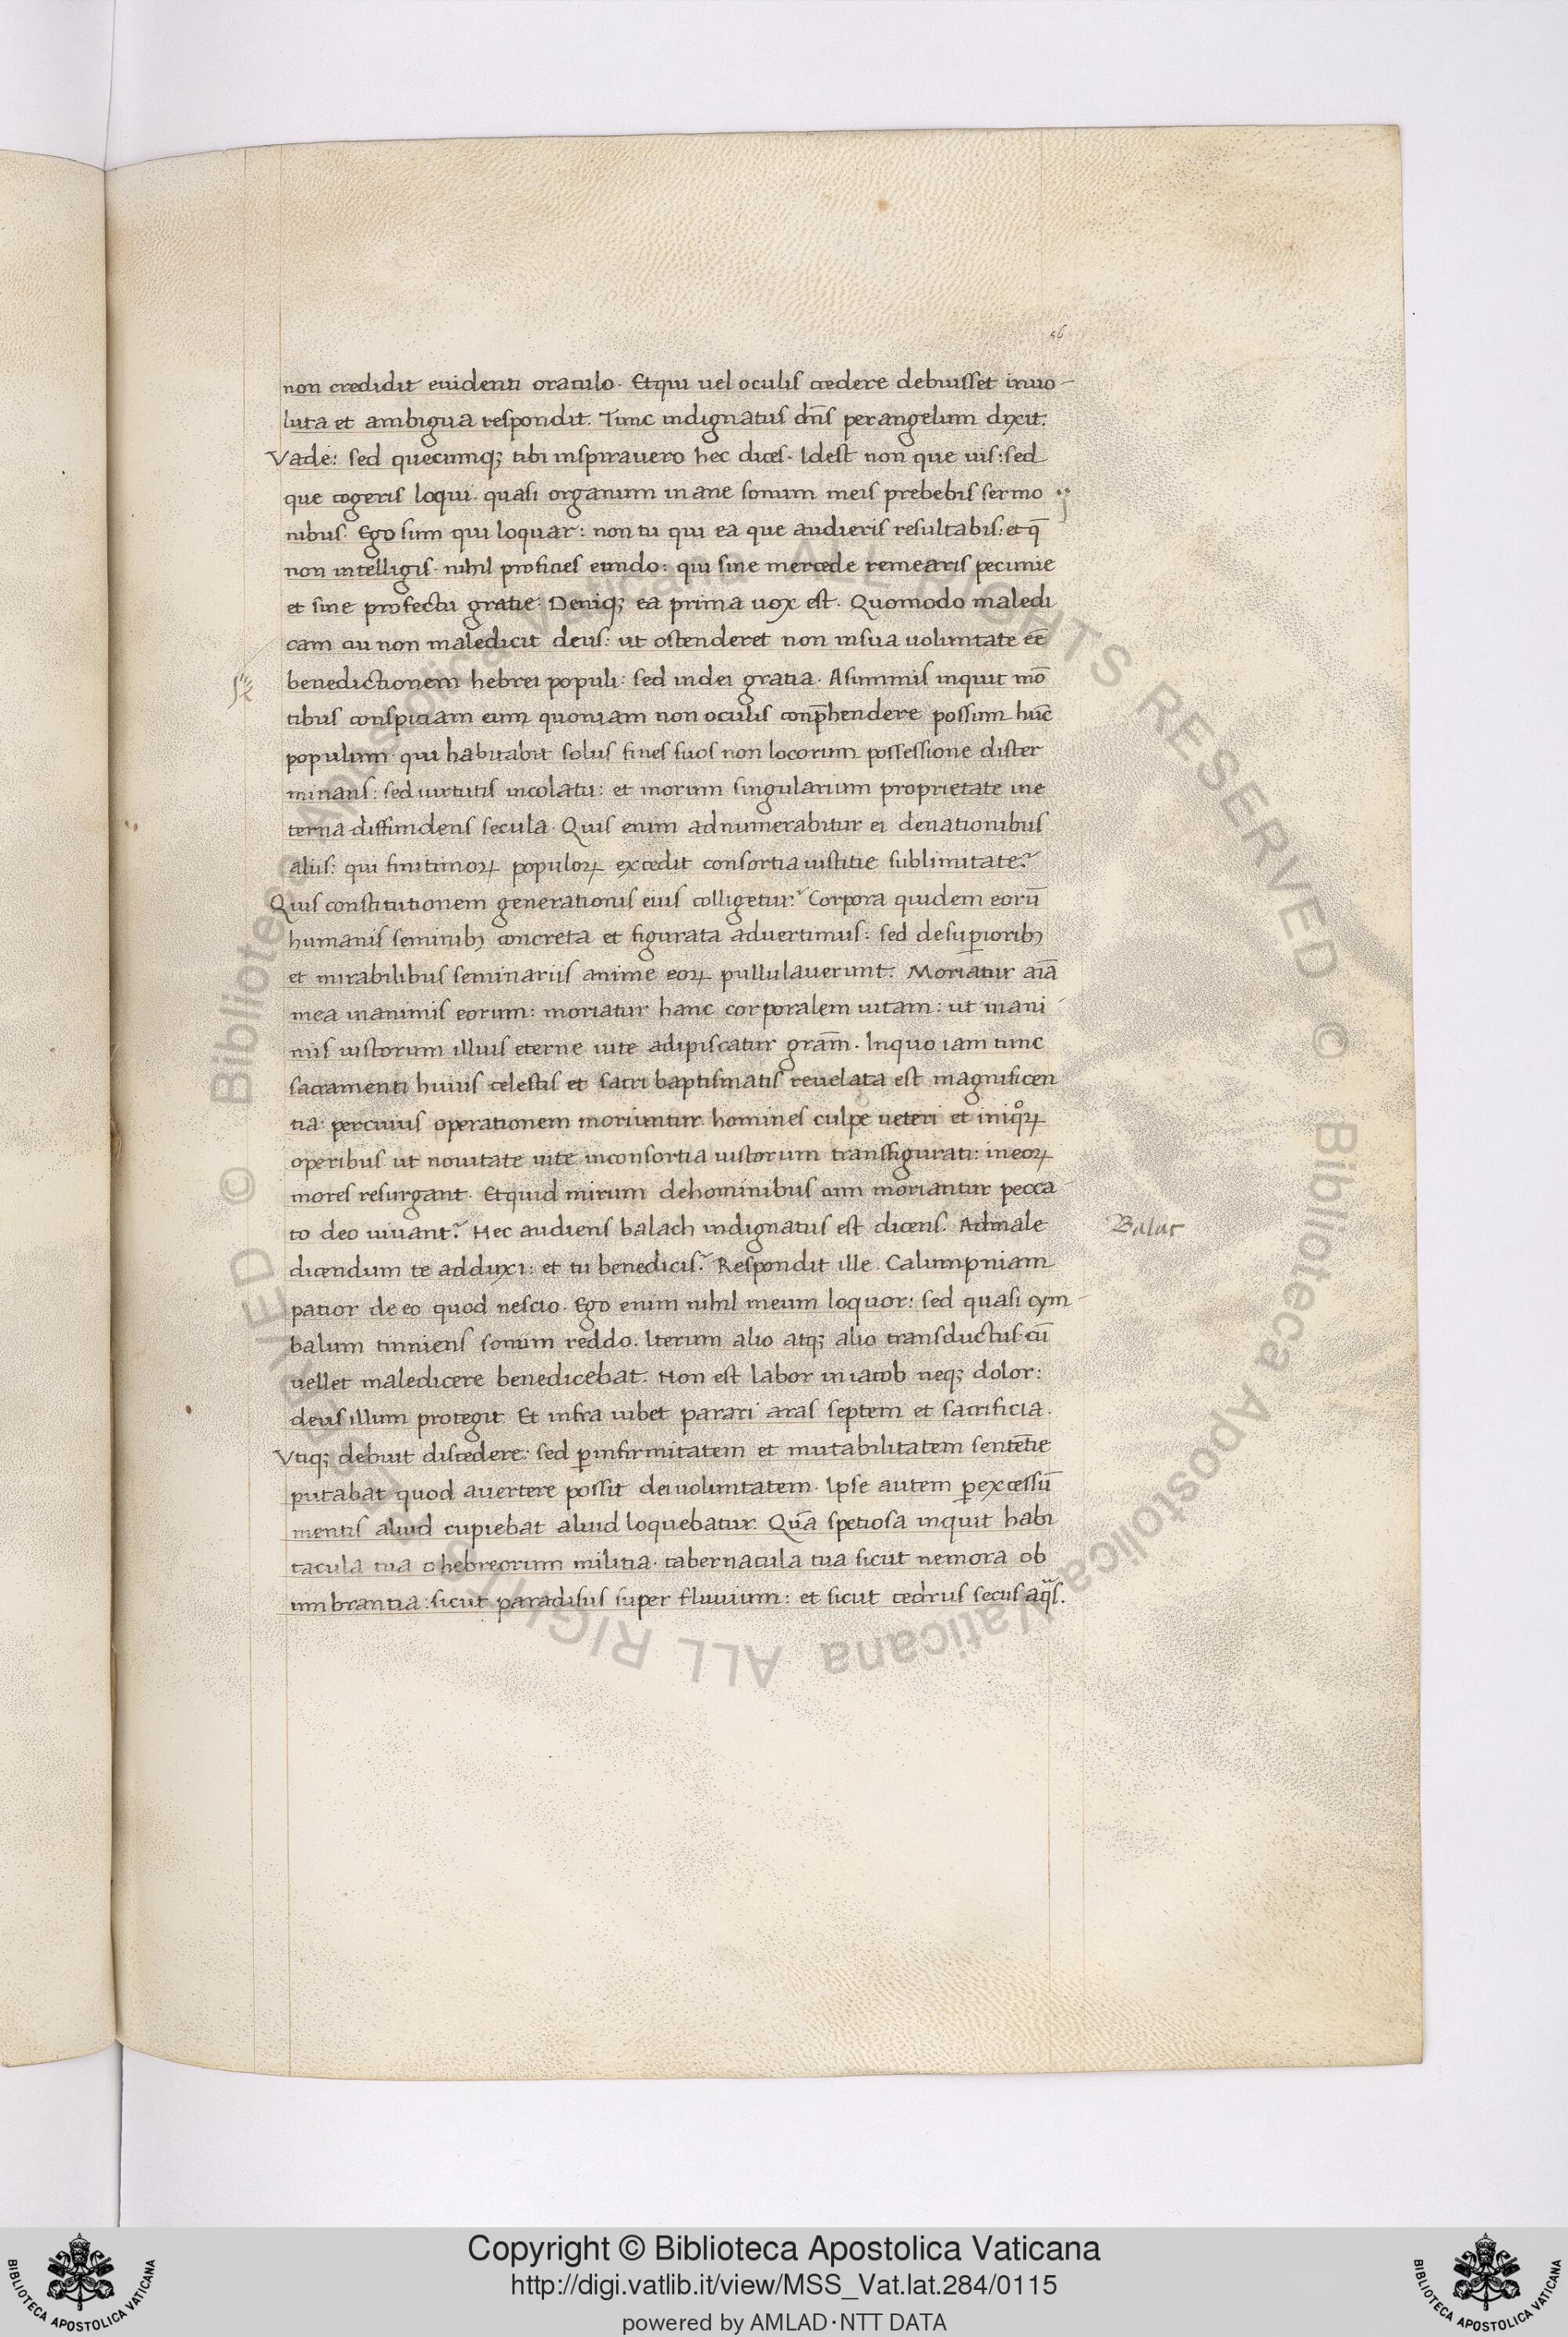 56
non credidit euidenti oraculo. Et qui uel oculis cedere debuisset inuo-
luta et ambigua respondit. Tunc indignatus dn̄s per angelum dixit.
Vade: sed quecumq; tibi inspirauero hec dices. Idest non que uis: sed
que cogeris loqui. quasi organum inane sonum meis prebebis sermo
nibus. Ego sum qui loquar: non tu qui ea que audieris resultabis: et q̄
non intelligis. nihil proficies eundo: qui sine mercede remearis pecunie
et sine profectu gratie. Deniq; ea prima uox est. Quomodo maledi
cam cui non maledicit deus: ut ostenderet non in sua uoluntate eē
benedictionem hebrei populi: sed in dei gratia. A summis inquit mō
tibus conspiciam eum quoniam non oculis conp̄hendere possum hūc
populum. qui habitabit solus fines suos non locorum possessione dister
minans: sed uirtutis incolatu: et morum singularium proprietate in e
terna diffundens secula. Quis enim adnumerabitur ei de nationibus
aliis: qui finitimoꝝ populoꝝ excedit consortia iustitie sublimitate?
Quis constitutionem generationis eius colligetur? Corpora quidem eorū
humanis seminibꝫ concreta et figurata advertimus: sed de suꝑioribꝫ
et mirabilibus seminariis anime eoꝝ pullulaverunt. Moriatur aīa
mea in animis eorum: moriatur hanc corporalem uitam: ut in ani
mis iustorum illius eterne uite adipiscatur grām. In quo iam tunc
sacramenti huius celestis et sacri baptismatis reuelata est magnificen
tia: per cuius operationem moriuntur homines culpe ueteri et iniqͦꝝ
operibus ut nouitate uite in consortia iustorum transfigurati: in eoꝝ
mores resurgant. Et quid mirum de hominibus cum moriantur pecca-
to deo uiuant? Hec audiens balach indignatus est dicens. Ad male
Balac
dicendum te adduxi: et tu benedicis? Respondit ille. Calumpniam
patior de eo quod nescio. Ego enim nihil meum loquor: sed quasi cym-
balum tinniens sonum reddo. Iterum alio atq; alio transductus: cū
uellet maledicere benedicebat. Non est labor in iacob neq; dolor:
deus illum protegit. Et infra iubet parari aras septem et sacrificia.
Vtiq; debuit discedere: sed ꝑ infirmitatem et mutabilitatem sentētie
putabat quod avertere possit dei uoluntatem. Ipse autem ꝑ excessū
mentis aliud cupiebat aliud loquebatur. Quā spetiosa inquit habi
tacula tua o hebreorum militia. tabernacula tua sicut nemora ob
umbrantia: sicut paradisus super fluuium: et sicut cedrus secus aqᵃs.
Copyright © Biblioteca Apostolica Vaticana
http://digi.vatlib.it/view/MSS_Vat.lat.284/0115
powered by AMLAD·NTT DATA
BIBLIOTECA APOSTOLICA VATICANA
BIBLIOTECA APOSTOLICA VATICANA
© Biblioteca Apostolica Vaticana ALL RIGHTS RESERVED © Biblioteca Apostolica Vaticana ALL RIGHTS RESERVED